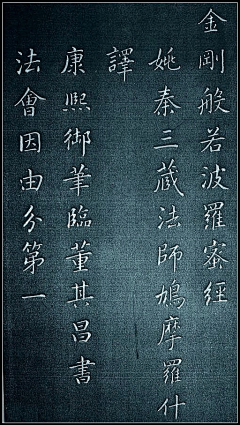 金剛般若波羅蜜經
姚秦三藏法師鳩摩羅什
譯
康熙御筆臨董其昌書
法會因由分第一